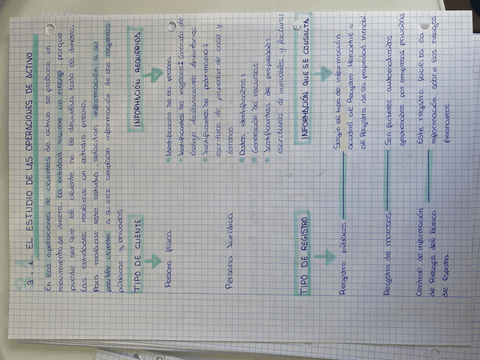 3.1 EL ESTUDIO DE LAS OPERACIONES DE ACTIVO
En las operaciones de clientes de activo se produce un
movimiento de dinero. La entidad asume un riesgo porque
puede ser que el cliente no le devuelva todo el dinero.
Las entidades realizan un estudio
Para realizar este estudio solicitan información a su
posible cliente a su vez amplían información de los registros
públicos y privados.
TIPO DE CLIENTE
INFORMACIÓN REQUERIDA
Persona física
• Identificación de la persona
• Justificantes de ingresos: contrato de
trabajo, declaraciones tributarias
• Justificantes de patrimonio:
escrituras de propiedad de casas y
terrenos
Persona jurídica
• Datos identificativos:
• Generación de recursos
• Justificantes de propiedad:
escrituras de inmuebles y facturas
TIPO DE REGISTRO
INFORMACIÓN QUE SE CONSULTA
Registro públicos
Según el tipo de información
acudirá al Registro Mercantil o
al Registro de la propiedad
Registro de morosos
Son ficheros automatizados
gestionados por empresas privadas
Central de información
de Riesgo del Banco
de España
Este registro facilita la
información sobre los riesgos
financieros.